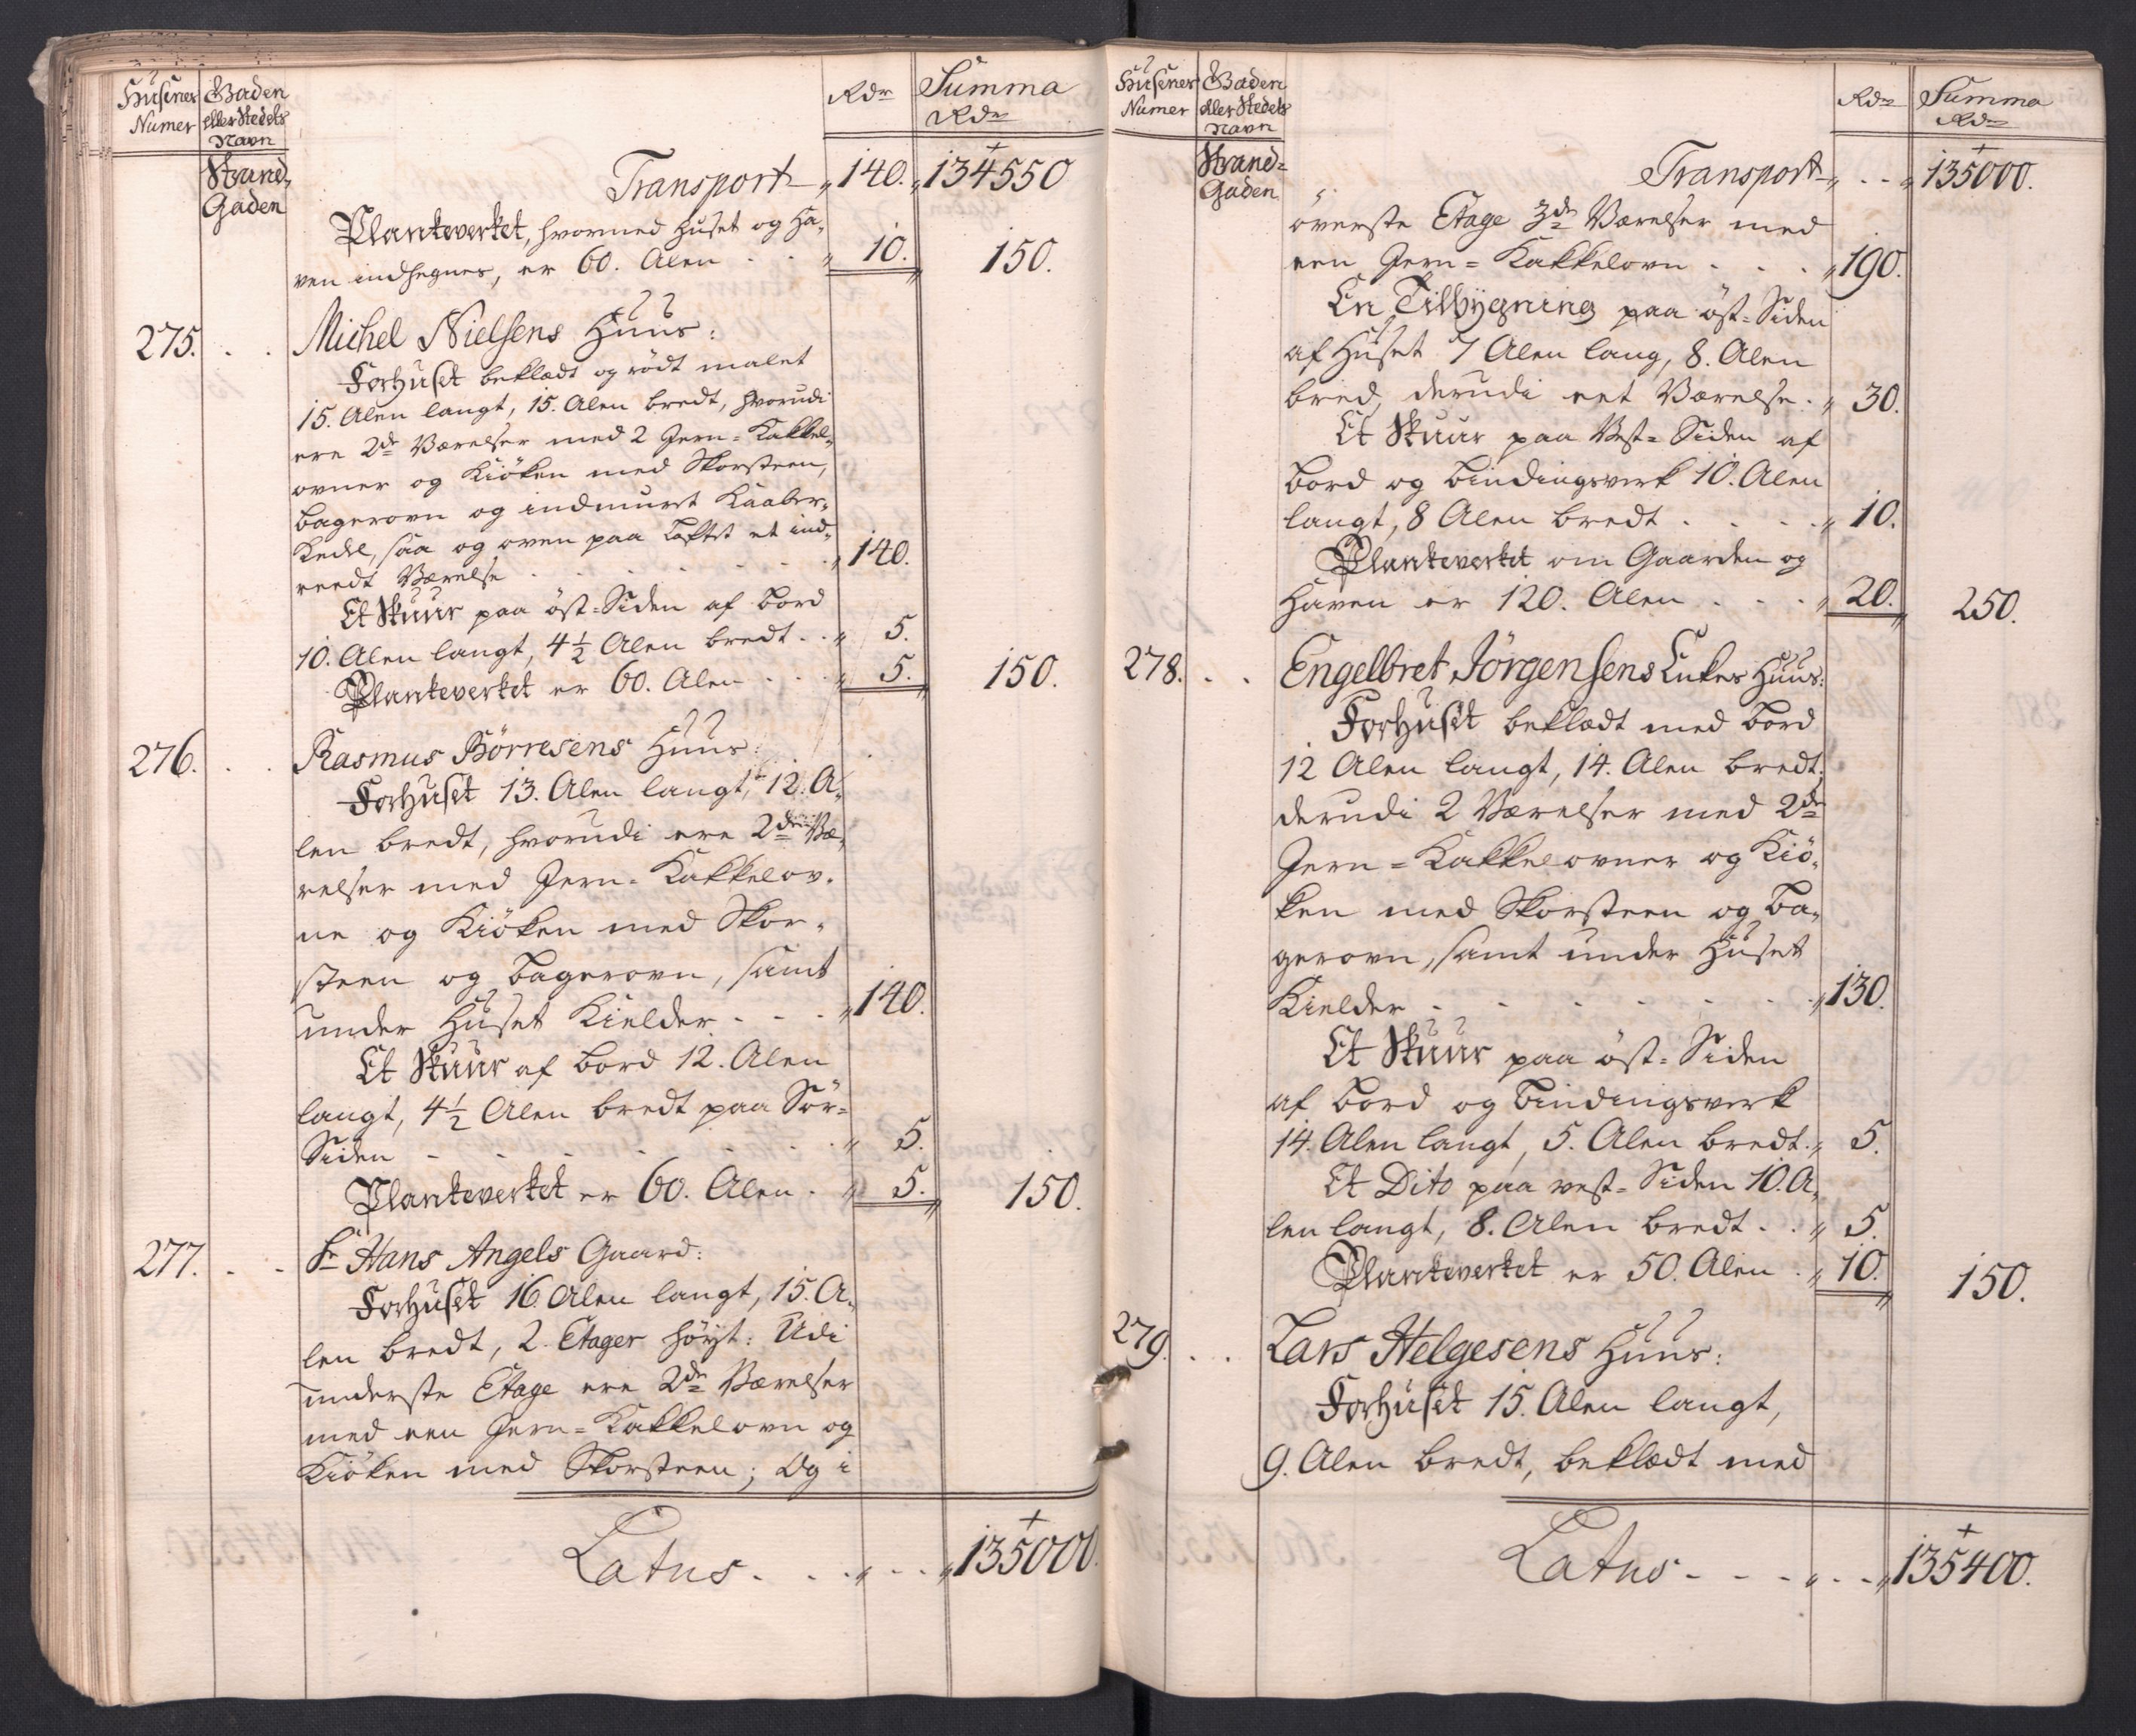 Husenes Numer | Gaden eller Stedets Navn | Rdr | Summa Rdr
Strand-Gaden
Transport „ 140. „ 134550
Plankeverket, hvormed Huset og Ha-
ven indhegnes, er 60. Alen . . „ 10. 150.
275. . . Michel Nielsens Huus:
Forhuset beklædt og rödt malet
15. Alen langt, 15. Alen bredt, hvorudi
ere 2de Værelser med 2 Jern-Kakkel-
ovner og Kiöken med Skorsteen,
bagerovn og indmuret Kaaber-
Kedel, saa og oven paa Loftet et ind-
reedt Værelse . . . . . „ 140.
Et Skuur paa öst-Siden af bord
10. Alen langt, 4½ Alen bredt . . „ 5.
Plankeverket er 60. Alen . . „ 5. 150.
276. . . Rasmus Börresens Huus:
Forhuset 13. Alen langt, 12. A-
len bredt, hvorudi ere 2de Væ-
relser med Jern-Kakkelov-
ne og Kiöken med Skor-
steen og bagerovn, samt
under Huset Kielder . . . „ 140.
Et Skuur af bord 12. Alen
langt, 4½ Alen bredt paa Sör-
Siden . . . . . „ 5.
Plankeverket er 60. Alen . „ 5. 150.
277. . . Sr Hans Angels Gaard:
Forhuset 16. Alen langt, 15. A-
len bredt, 2. Etager höyt: Udi
underste Etage ere 2de Værelser
med een Jern-Kakkelovn og
Kiöken med Skorsteen; Og i
Latus . . . „ . . „ 135000.
Husenes Numer | Gaden eller Stedets Navn | Rdr | Summa Rdr
Strand-Gaden
Transport „ . . „ 135000.
överste Etage 3de Værelser med
een Jern-Kakkelovn . . . „ 190.
En Tilbygning paa öst-Siden
af Huset 7 Alen lang, 8. Alen
bred, derudi eet Værelse . „ 30.
Et Skuur paa Vest-Siden af
bord og bindingsverk 10. Alen
langt, 8 Alen bredt . . . . „ 10.
Plankeverket om Gaarden og
Haven er 120. Alen . . . „ 20. 250.
278. . . Engelbret Jörgensens Enkes Huus:
Forhuset beklædt med bord
12 Alen langt, 14. Alen bredt,
derudi 2 Værelser med 2de
Jern-Kakkelovner og Kiö-
ken med Skorsteen og ba-
gerovn, samt under Huset
Kielder . . . . . . „ 130.
Et Skuur paa öst-Siden
af bord og bindingsverk
14. Alen langt, 5. Alen bredt . „ 5.
Et Dito paa vest-Siden 10. A-
len langt, 8. Alen bredt . . „ 5.
Plankeverket er 50. Alen . „ 10. 150.
279. . . Lars Helgesens Huus:
Forhuset 15. Alen langt,
9. Alen bredt, beklædt med
Latus . . . „ . . „ 135400.